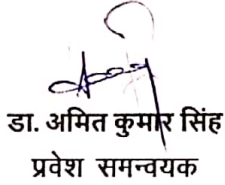 डा. अमित कुमार सिंह
प्रवेश समन्वयक